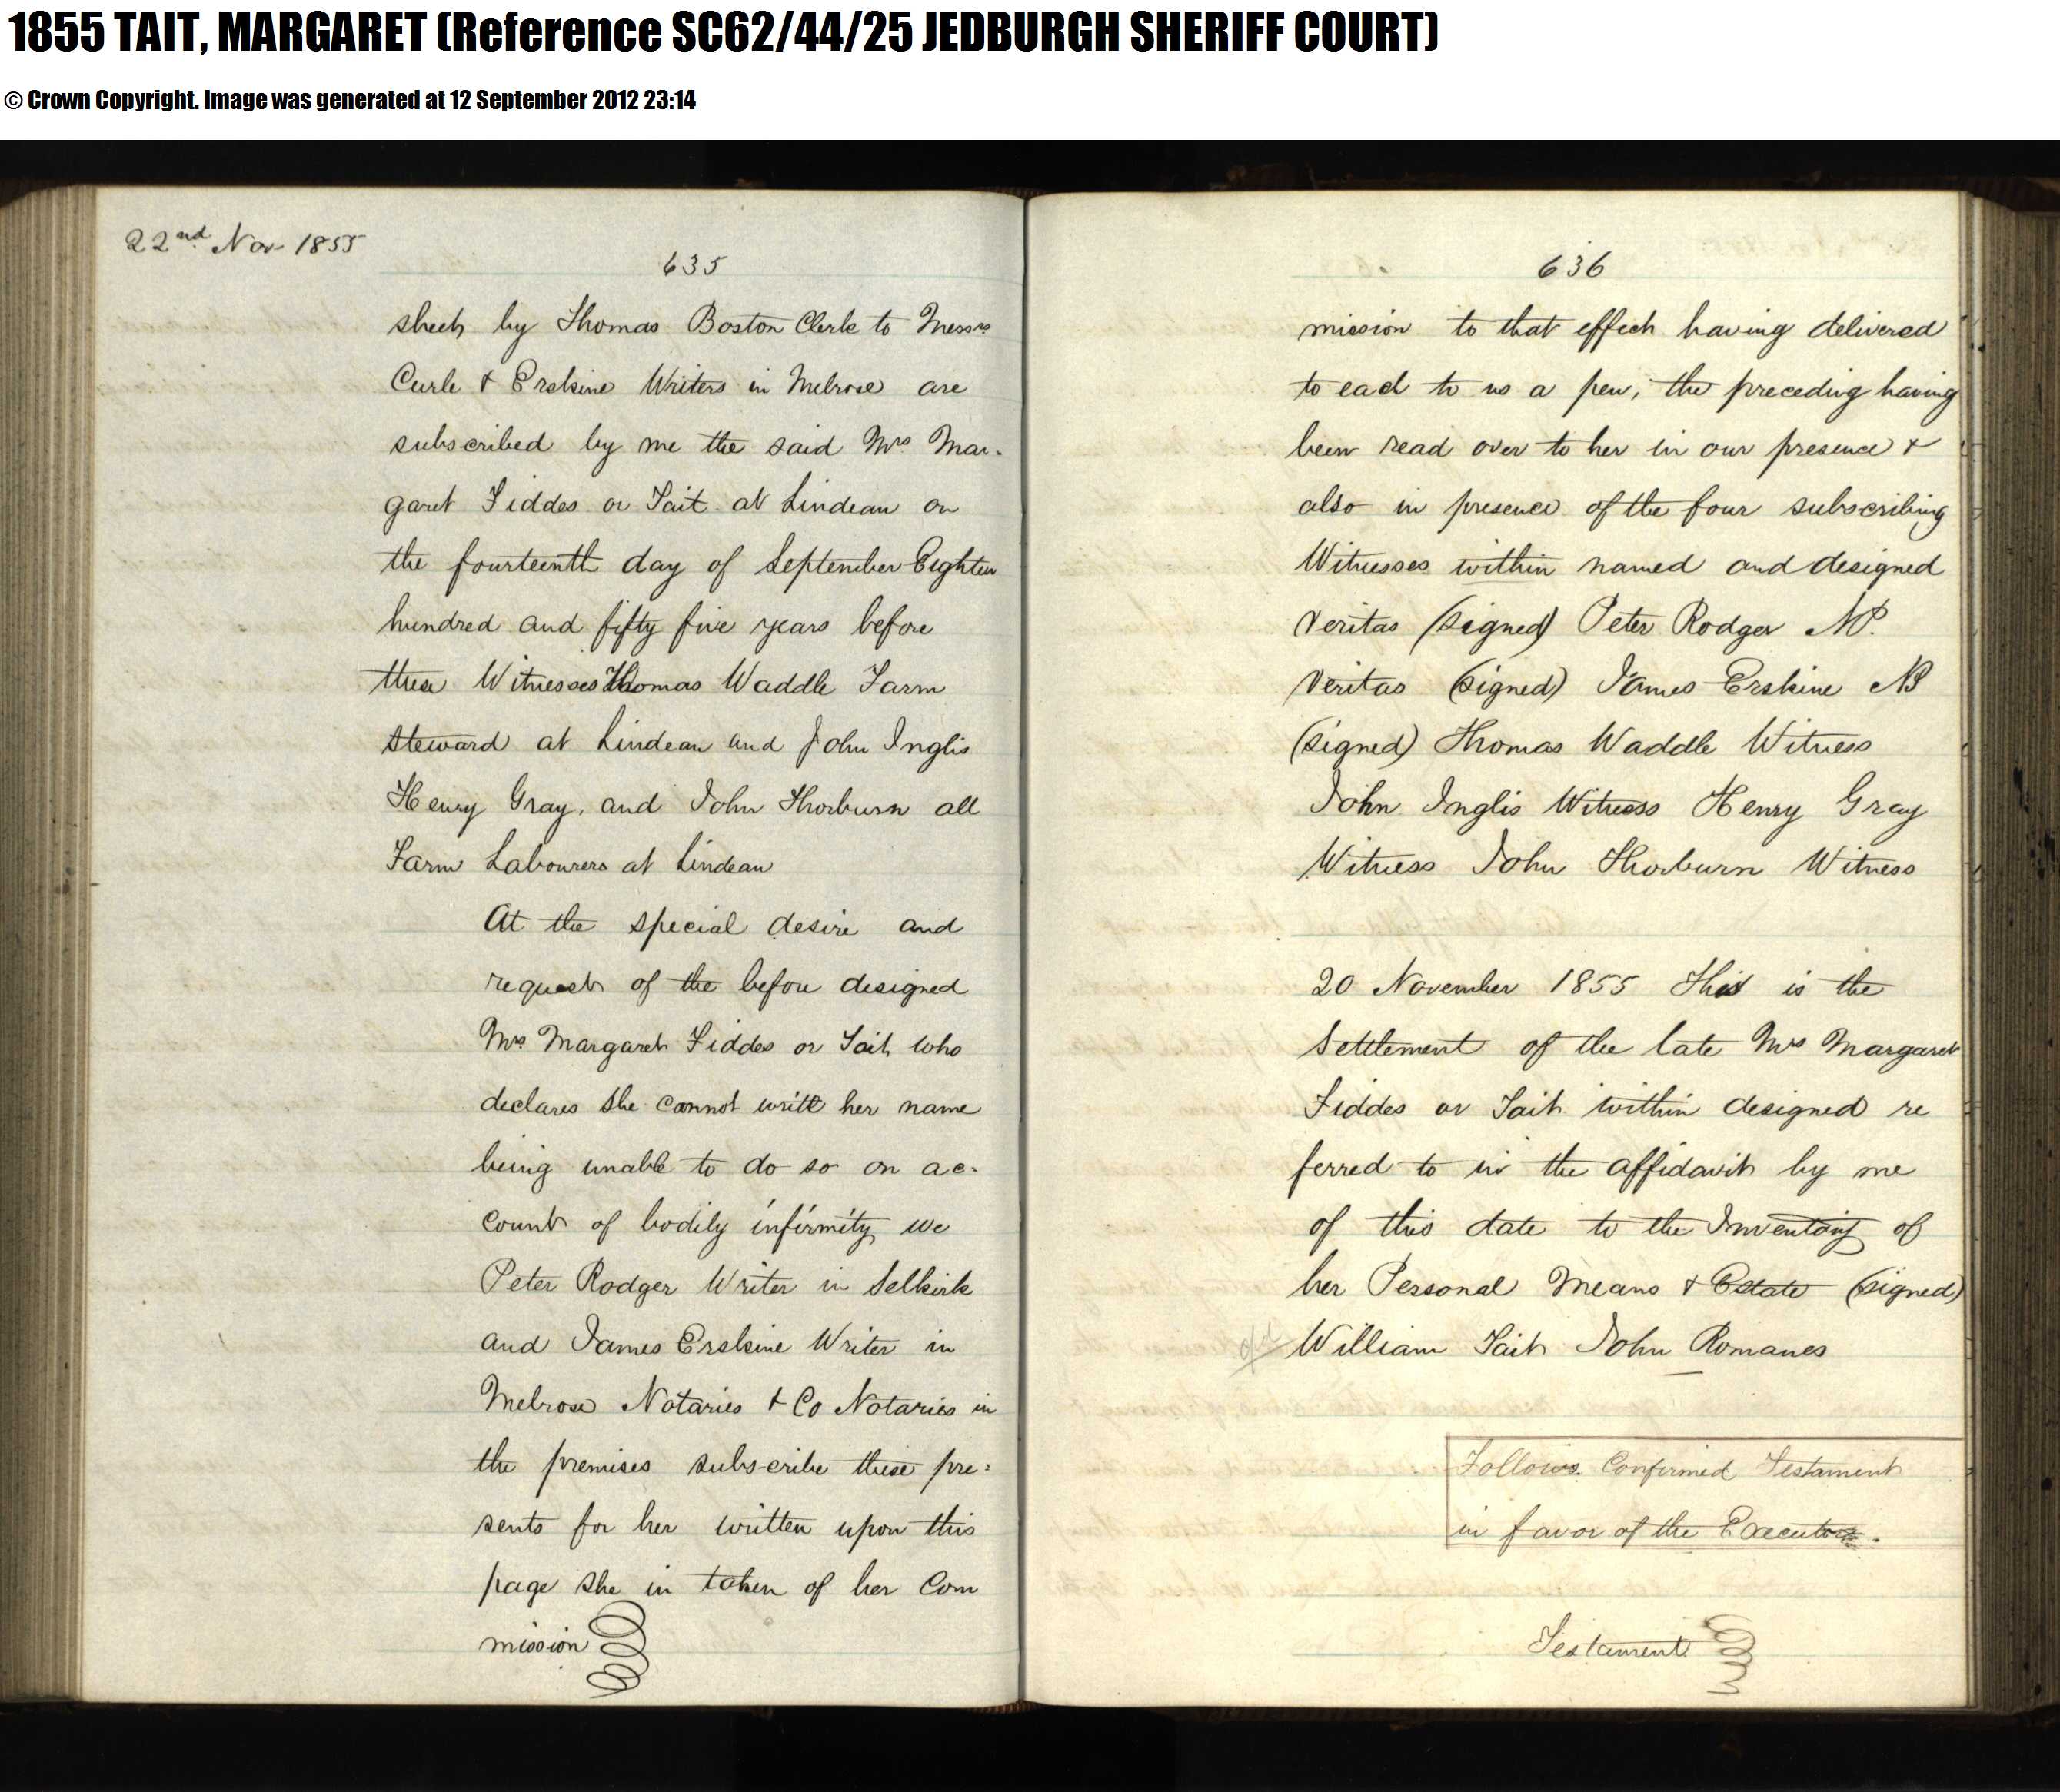 1855 TAIT, MARGARET (Reference SC62/44/25 JEDBURGH SHERIFF COURT)
© Crown Copyright. Image was generated at 12 September 2012 23:14
22nd Nov 1855
635
sheet by Thomas Boston Clerk to Messrs
Curle & Erskine Writers in Melrose are
subscribed by me the said Mrs Mar-
garet Fiddes or Tait at Lindean on
the fourteenth day of September Eighteen
hundred and fifty five years before
these Witnesses Thomas Waddle Farm
Steward at Lindean and John Inglis
Henry Gray, and John Thorburn all
Farm Labourers at Lindean
At the special desire and
request of the before designed
Mrs Margaret Fiddes or Tait who
declares she cannot write her name
being unable to do so on ac-
count of bodily infirmity we
Peter Rodger Writer in Selkirk
and James Erskine Writer in
Melrose Notaries & Co Notaries in
the premises subscribe these pre-
sents for her written upon this
page she in token of her Com
mission
636
mission to that effect having delivered
to each to us a pen, the preceding having
been read over to her in our presence &
also in presence of the four subscribing
Witnesses within named and designed
Veritas (signed) Peter Rodger NP.
Veritas (signed) James Erskine NP
(signed) Thomas Waddle Witness
John Inglis Witness Henry Gray
Witness John Thorburn Witness
20 November 1855 This is the
Settlement of the late Mrs Margaret
Fiddes or Tait within designed re
ferred to in the affidavit by me
of this date to the Inventory of
her Personal Means & Estate (signed)
William Tait John Romanes
Follows Confirmed Testament
in favor of the Executors.
Testament